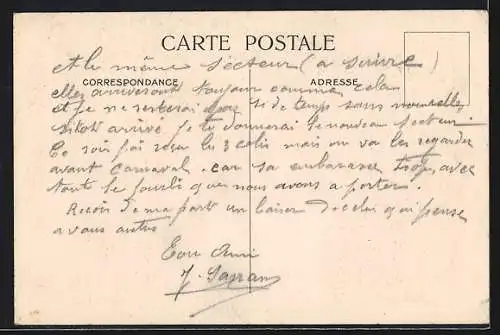 CARTE POSTALE
et le même secteur (a suivre)
CORRESPONDANCE ADRESSE
elles arriveront toujour comme cela
et je ne resterai pas si de temps sans nouvelles
sitot arrivé je te donnerai le nouveau secteur
Ce soir j'ai reçu les 3 colis mais on va les regarder
avant Carnaval. car sa embarasse trop, avec
tout le fourbi que nous avons a porter.
Recois de ma part un baiser de celui qui pense
a vous autres
Ton Ami
J.